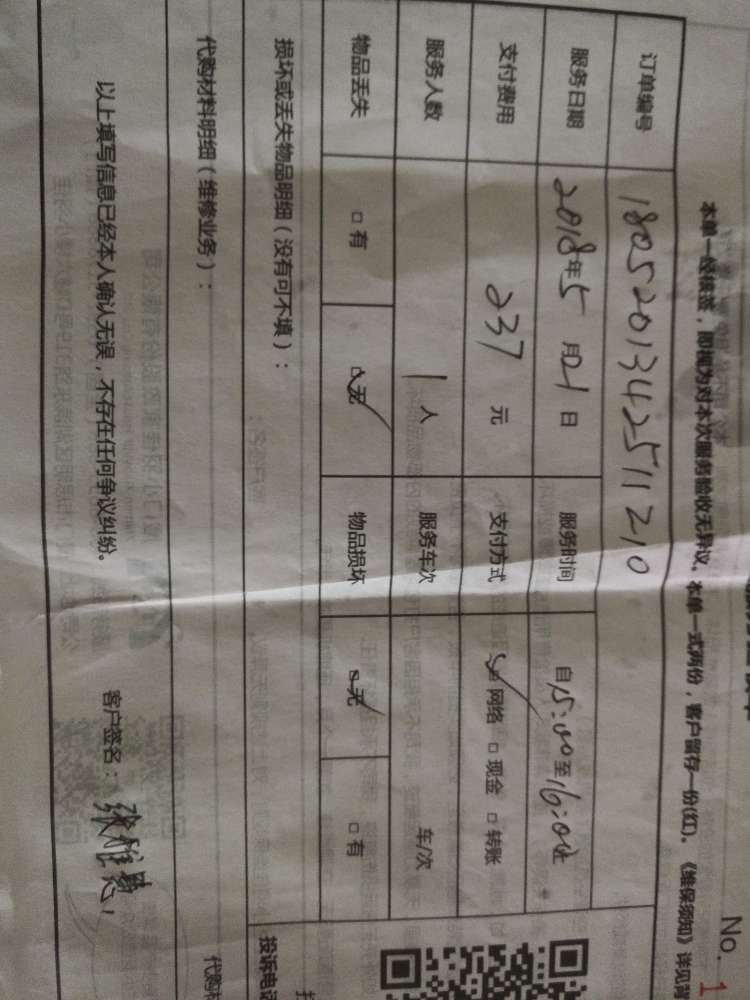 No. 1
本单一经核签，即视为对本次服务验收无异议。本单一式两份，客户留存一份(红)。《维保须知》详见背
订单编号 1805201342511210
服务日期 2018年5月21日 服务时间 自15:00至16:00
支付费用 237元 支付方式 网络 □现金 □转账
服务人数 1人 服务车次 车/次
物品丢失 □有 无 物品损坏 无 □有
损坏或丢失物品明细（没有可不填）：
投诉电话
代购材料明细（维修业务）：
代购材
以上填写信息已经本人确认无误，不存在任何争议纠纷。 客户签名：